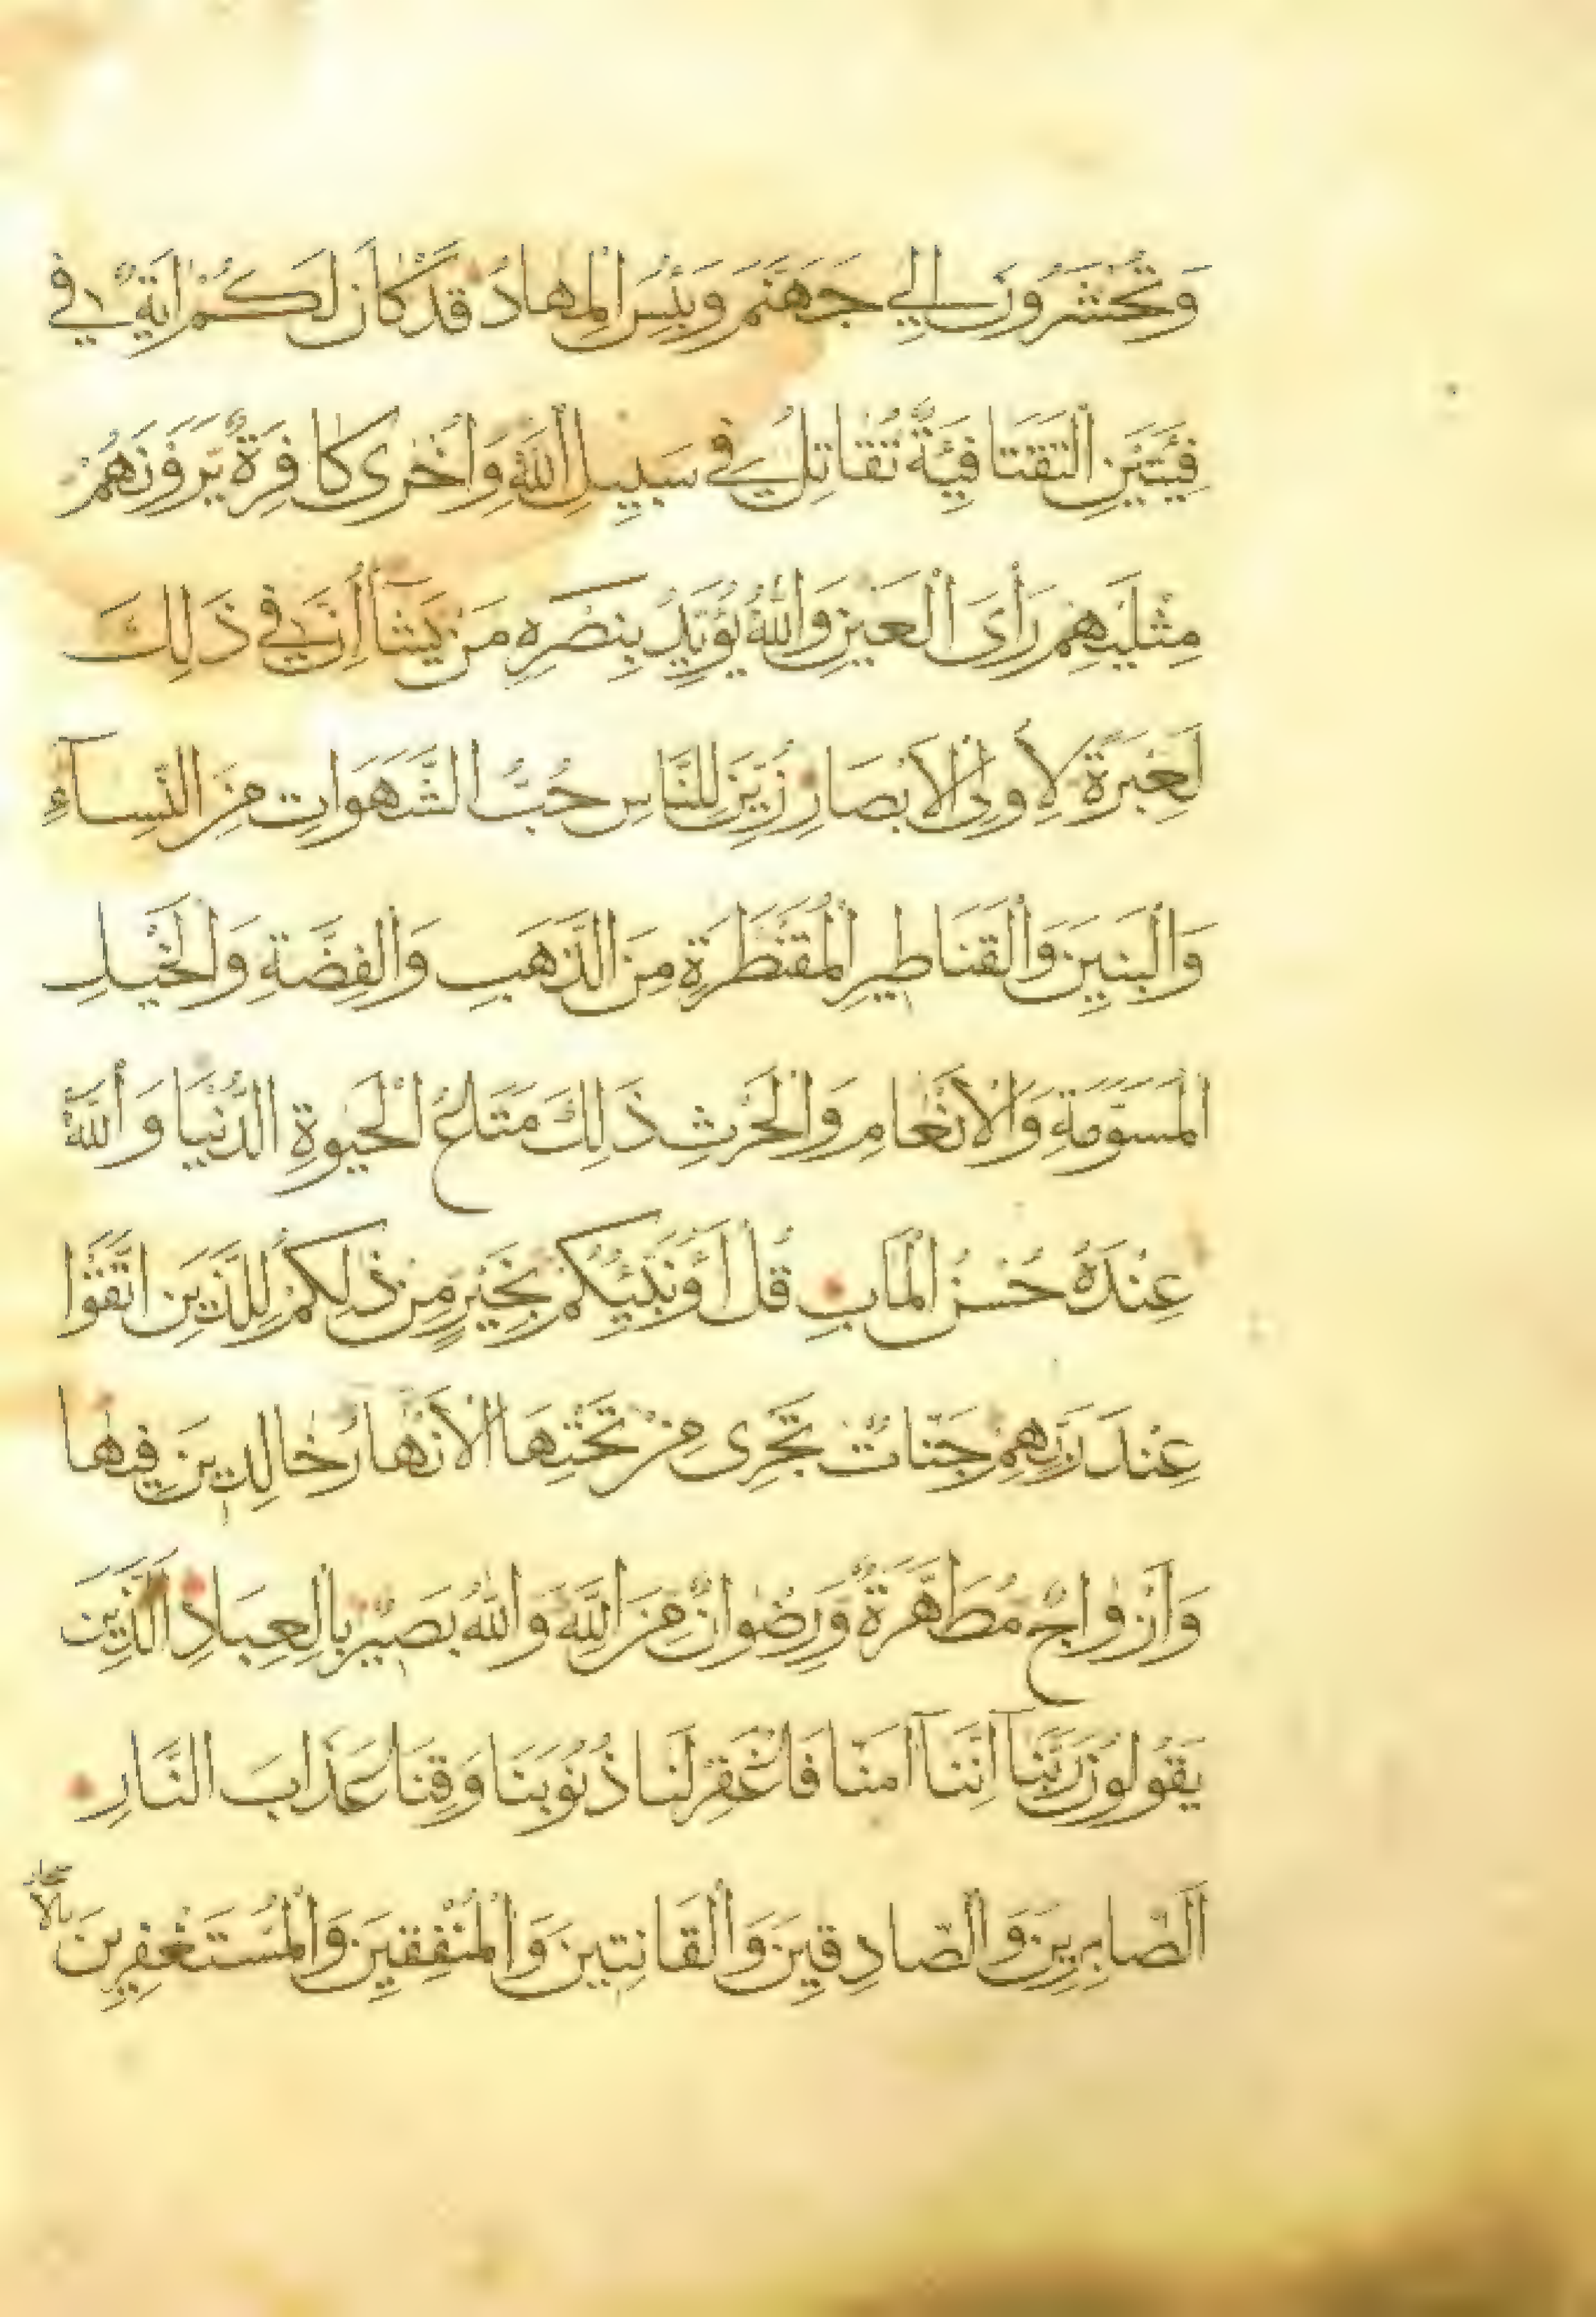 وَتُحْشَرُونَ اِلٰي جَهَنَّمَ وَبِئْسَ الْمِهَادُ قَدْ كَانَ لَكُمْ اٰيَةٌ فِي
فِئَتَيْنِ الْتَقَتَا فِئَةٌ تُقَاتِلُ فِي سَبِيلِ اللّٰهِ وَاُخْرٰى كَافِرَةٌ يَرَوْنَهُمْ
مِثْلَيْهِمْ رَأْىَ الْعَيْنِ وَاللّٰهُ يُؤَيِّدُ بِنَصْرِهِ مَنْ يَشَآءُ اِنَّ فِي ذَلِكَ
لَعِبْرَةً لِاُولِى الْاَبْصَارِ زُيِّنَ لِلنَّاسِ حُبُّ الشَّهَوَاتِ مِنَ النِّسَآءِ
وَالْبَنِينَ وَالْقَنَاطِيرِ الْمُقَنْطَرَةِ مِنَ الذَّهَبِ وَالْفِضَّةِ وَالْخَيْلِ
الْمُسَوَّمَةِ وَالْاَنْعَامِ وَالْحَرْثِ ذَلِكَ مَتَاعُ الْحَيٰوةِ الدُّنْيَا وَاللّٰهُ
عِنْدَهُ حُسْنُ الْمَاٰبِ قُلْ اَؤُنَبِّئُكُمْ بِخَيْرٍ مِنْ ذٰلِكُمْ لِلَّذِينَ اتَّقَوْا
عِنْدَ رَبِّهِمْ جَنَّاتٌ تَجْرِى مِنْ تَحْتِهَا الْاَنْهَارُ خَالِدِينَ فِيهَا
وَاَزْوَاجٌ مُطَهَّرَةٌ وَرِضْوَانٌ مِنَ اللّٰهِ وَاللّٰهُ بَصِيرٌ بِالْعِبَادِ الَّذِينَ
يَقُولُونَ رَبَّنَآ اِنَّنَآ اٰمَنَّا فَاغْفِرْ لَنَا ذُنُوبَنَا وَقِنَا عَذَابَ النَّارِ
اَلصَّابِرِينَ وَالصَّادِقِينَ وَالْقَانِتِينَ وَالْمُنْفِقِينَ وَالْمُسْتَغْفِرِينَ بِالْاَسْحَارِ